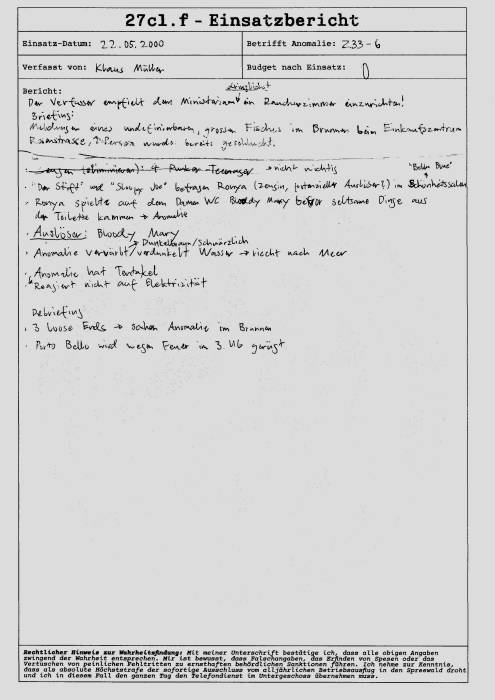 27cl.f - Einsatzbericht
Einsatz-Datum: 22.05.2000
Betrifft Anomalie: Z33-6
Verfasst von: Klaus Müller
Budget nach Einsatz: 0
Bericht:
dringlichst
Der Verfasser empfielt dem Ministerium ein Raucherzimmer einzurichten!
Briefing:
Meldungen eines undefinierbaren, grossen Fisches im Brunnen beim Einkaufszentrum
1 Person wurde bereits geschluckt.
Zeugen (eliminieren): 4 Punker-Teenager → nicht nichtig
"Bella Blue"
"Der Stift" und "Sloppy Joe" befragen Ronya (Zeugin, potenzieller Auslöser?) im Schönheitssalon
Ronya spielte auf dem Damen WC Bloody Mary bevor seltsame Dinge aus
der Toilette kammen → Anomalie
Auslöser: Bloody Mary
Dunkelbraun/Schwärzlich
Anomalie verfärbt/verdunkelt Wasser → riecht nach Meer
Anomalie hat Tentakel
Reagiert nicht auf Elektrizität
Debriefing
3 Loose Ends → sahen Anomalie im Brunnen
Porto Bello wird wegen Feuer im 3. UG gerügt
Rechtlicher Hinweis zur Wahrheitsfindung: Mit meiner Unterschrift bestätige ich, dass alle obigen Angaben
zwingend der Wahrheit entsprechen. Mir ist bewusst, dass Falschangaben, das Erfinden von Spesen oder das
Vertuschen von peinlichen Fehltritten zu ernsthaften behördlichen Sanktionen führen. Ich nehme zur Kenntnis,
dass als absolute Höchststrafe der sofortige Ausschluss vom alljährlichen Betriebsausflug in den Spreewald droht
und ich in diesem Fall den ganzen Tag den Telefondienst im Untergeschoss übernehmen muss.